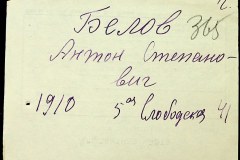 г.
Белов 365
Антон Степано-
вич
-1910 5ая Слободская 41